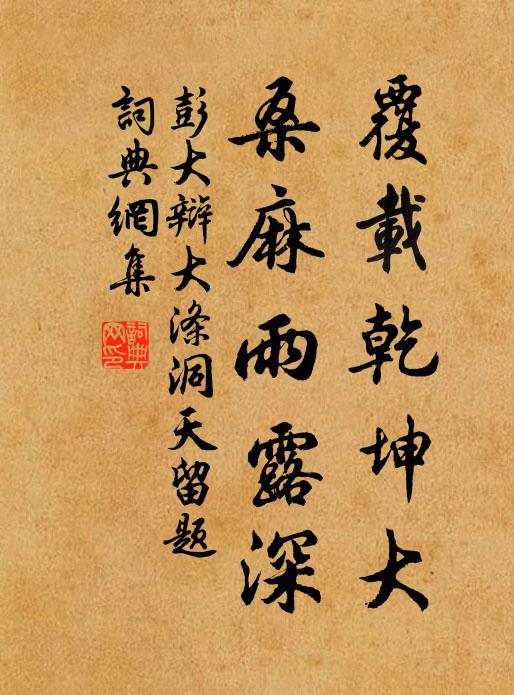 覆載乾坤大
桑麻雨露深
彭大辯大滌洞天留題
詞典網集
詞典網印